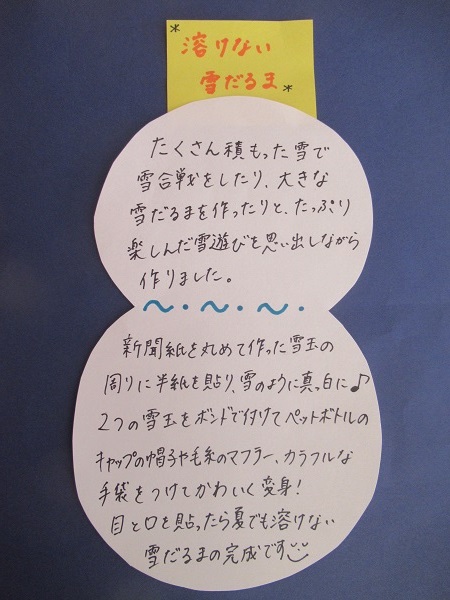 *溶けない
雪だるま*
たくさん積もった雪で
雪合戦をしたり、大きな
雪だるまを作ったりと、たっぷり
楽しんだ雪遊びを思い出しながら
作りました。
~・~・~・
新聞紙を丸めて作った雪玉の
周りに半紙を貼り、雪のように真っ白に♪
2つの雪玉をボンドで付けてペットボトルの
キャップの帽子や毛糸のマフラー、カラフルな
手袋をつけてかわいく変身!
目と口を貼ったら夏でも溶けない
雪だるまの完成です